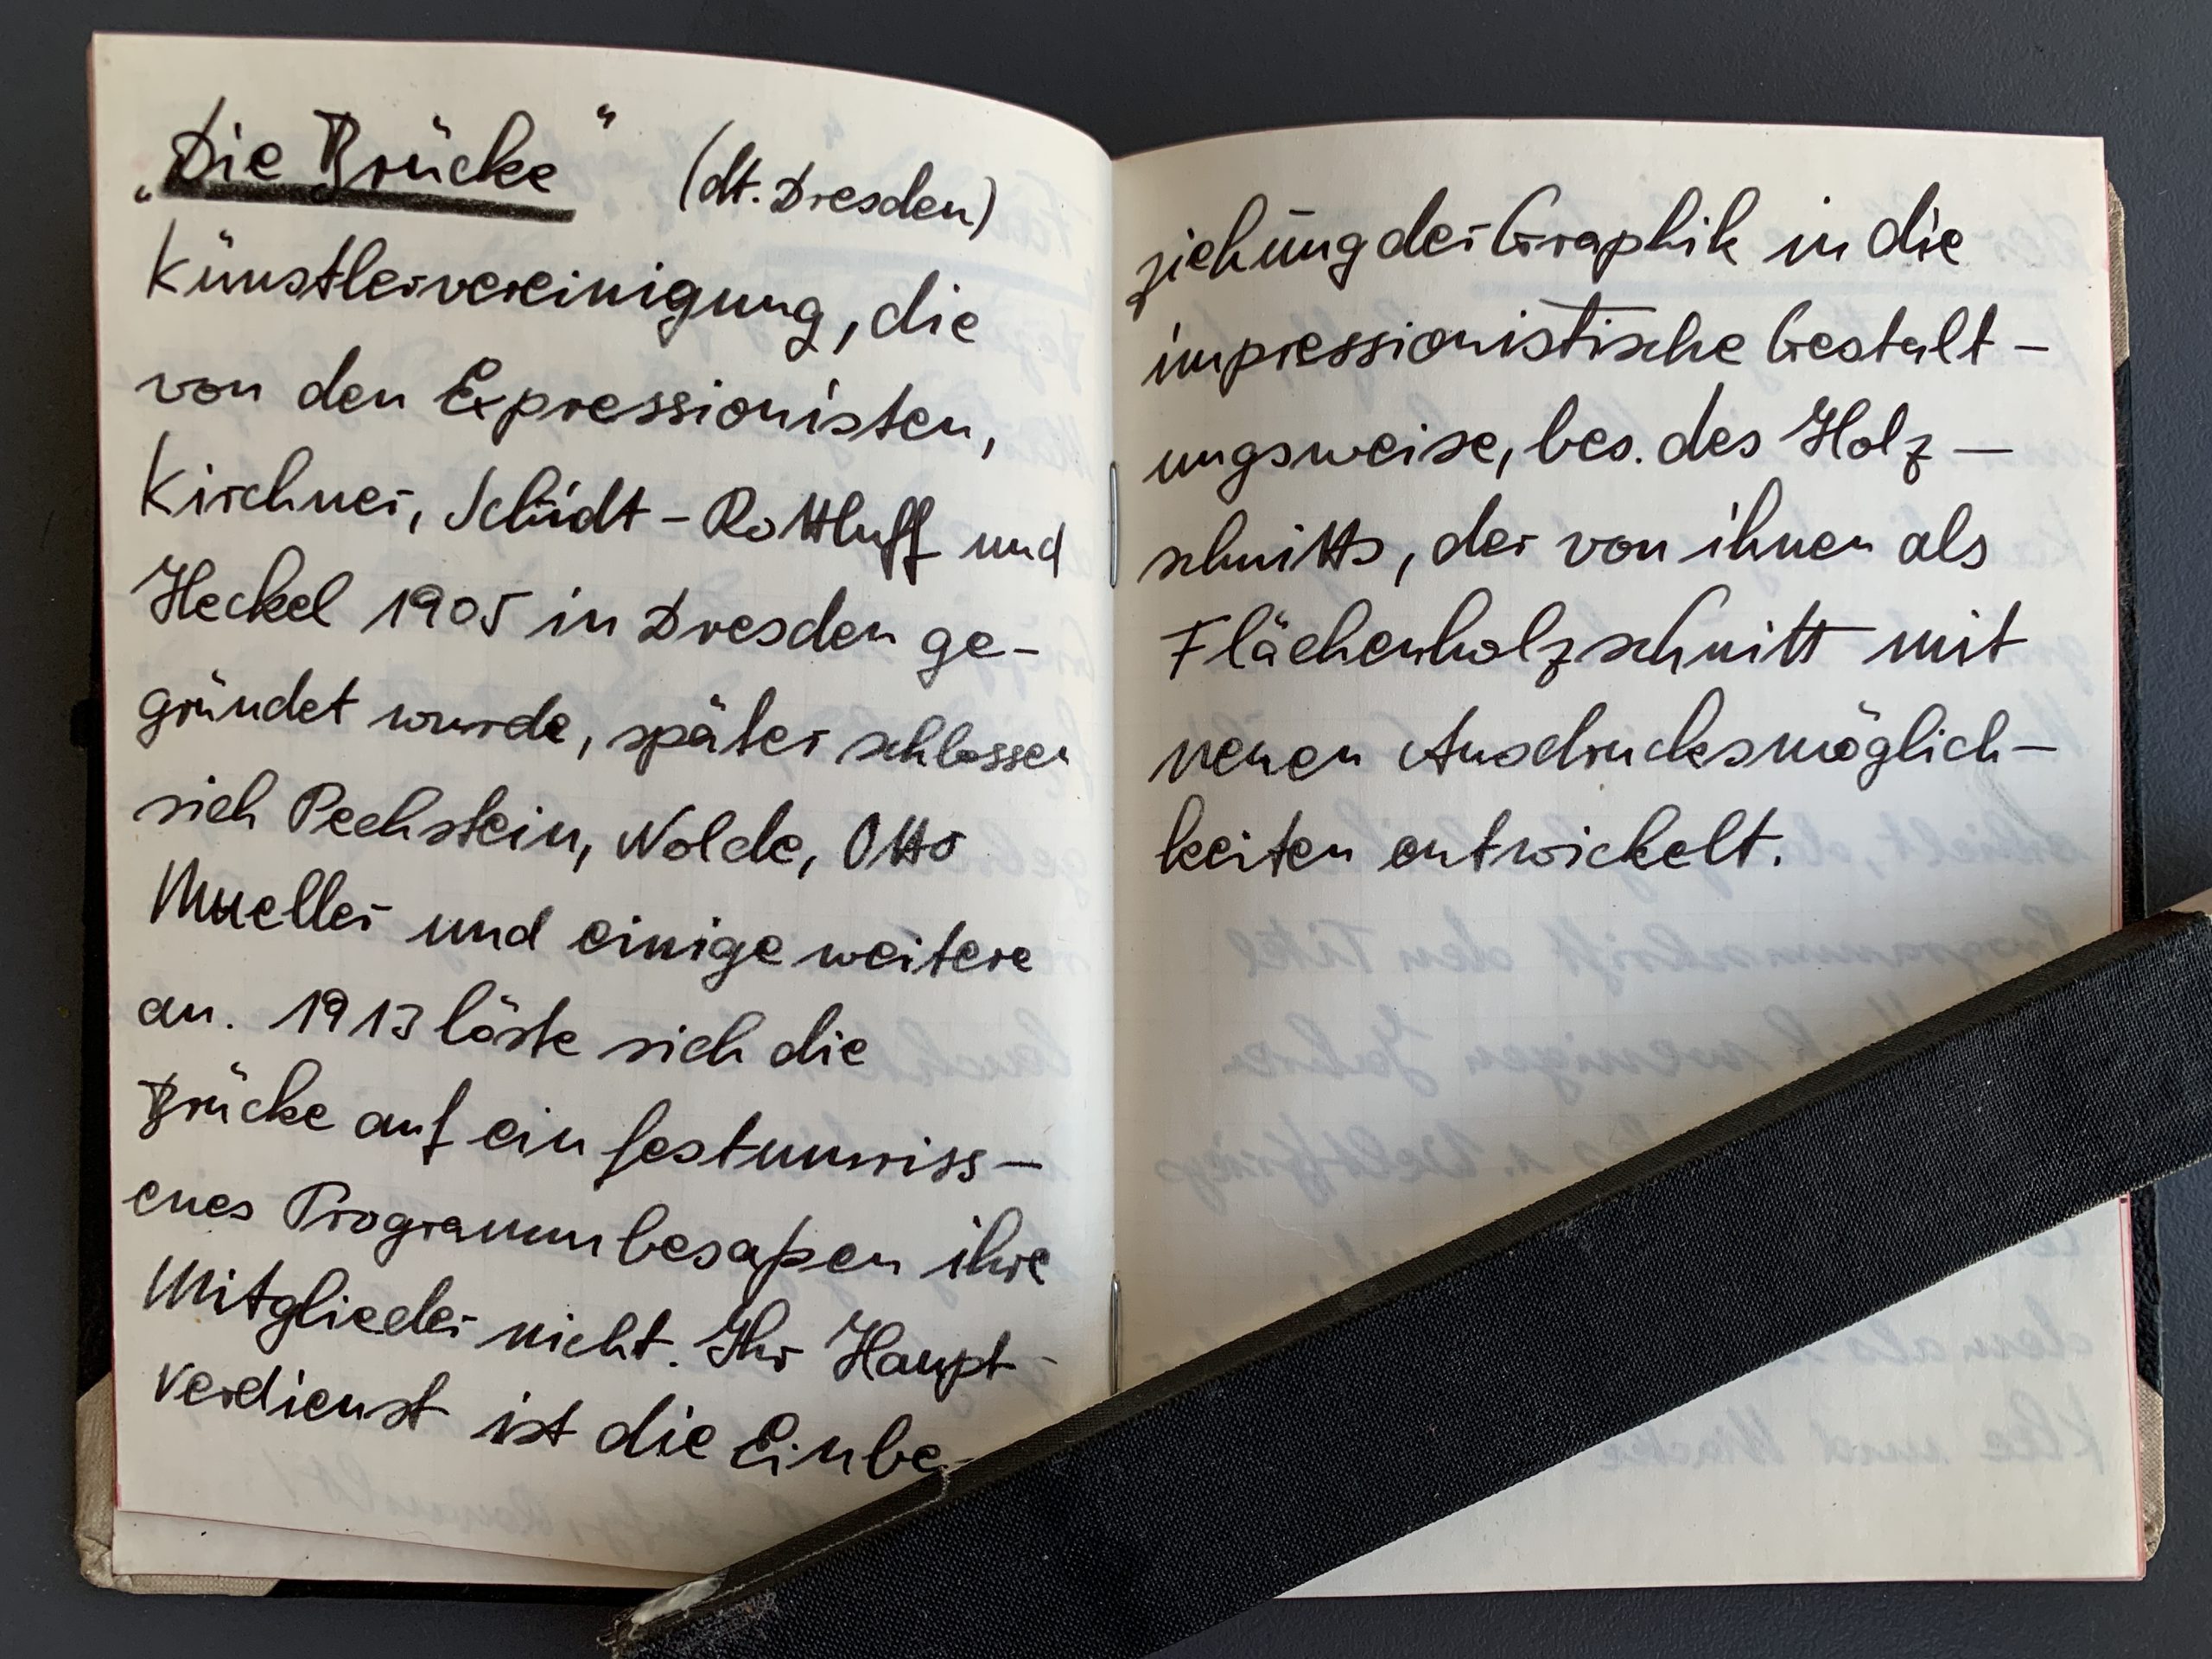 „Die Brücke“ (dt. Dresden)
Künstlervereinigung, die
von den Expressionisten,
Kirchner, Schmidt-Rottluff und
Heckel 1905 in Dresden ge-
gründet wurde, später schlossen
sich Pechstein, Nolde, Otto
Mueller und einige weitere
an. 1913 löste sich die
Brücke auf ein festumriss-
enes Programm besaßen ihre
Mitglieder nicht. Ihr Haupt-
verdienst ist die Einbe-
ziehung der Graphik in die
impressionistische Gestalt-
ungsweise, bes. des Holz-
schnitts, der von ihnen als
Flächenholzschnitt mit
neuen Ausdrucksmöglich-
keiten entwickelt.